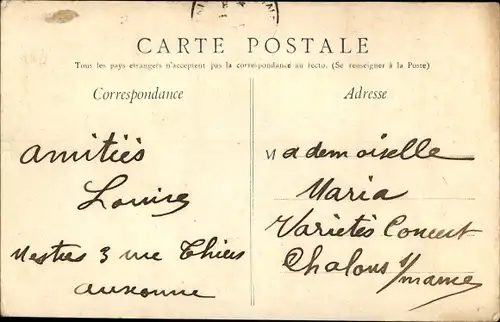 CARTE POSTALE
Tous les pays étrangers n'acceptent pas la correspondance au recto. (Se renseigner à la Poste)
Correspondance
Amitiés
Louise
3 rue Thiers
Auxonne
Adresse
Mademoiselle
Maria
Varietés Concert
Chalons s/marne